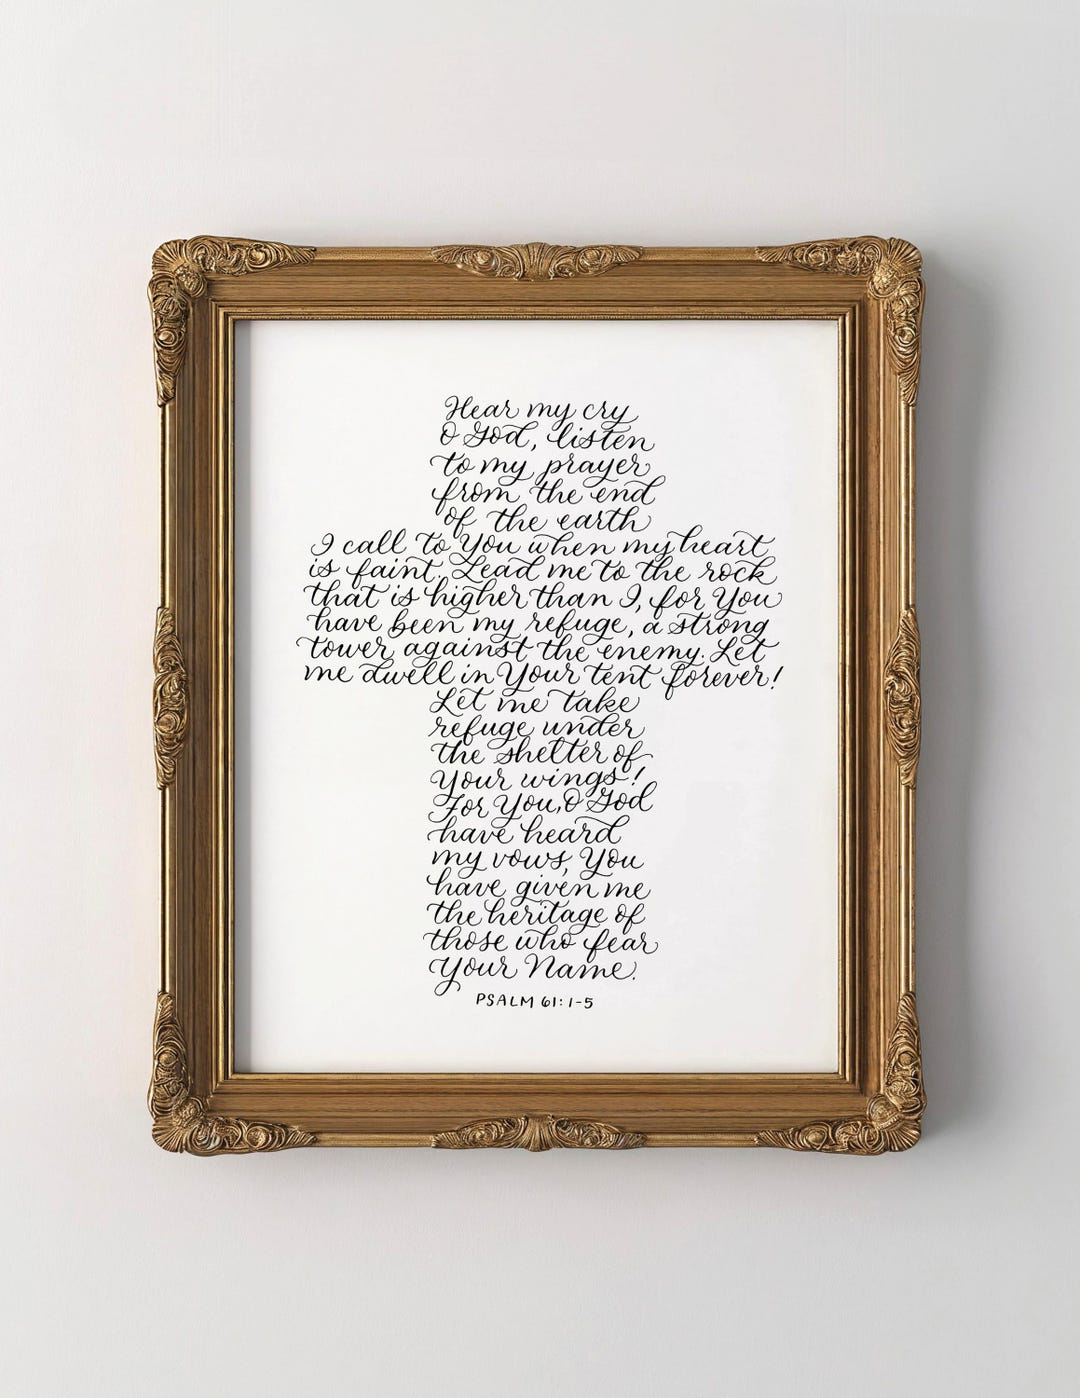 Hear my cry
O God, listen
to my prayer
from the end
of the earth
I call to You when my heart
is faint. Lead me to the rock
that is higher than I, for You
have been my refuge, a strong
tower against the enemy. Let
me dwell in Your tent forever!
Let me take
refuge under
the shelter of
Your wings!
For You, O God
have heard
my vows, You
have given me
the heritage of
those who fear
Your Name.
PSALM 61:1-5